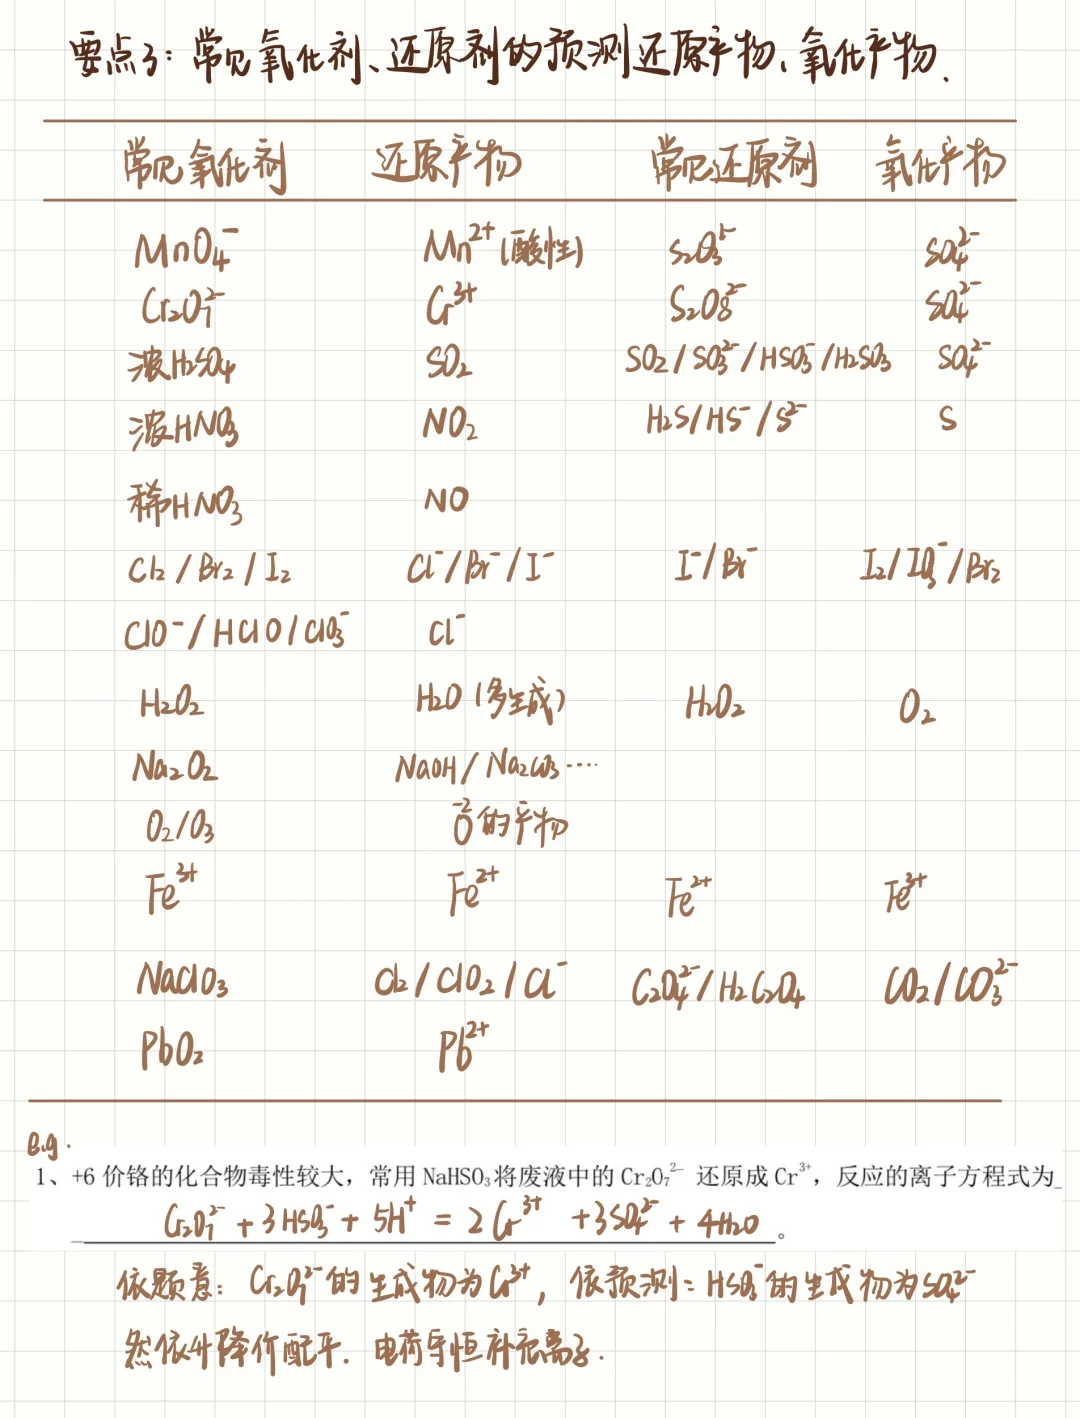 要点3：常见氧化剂、还原剂的预测还原产物、氧化产物.
常见氧化剂 还原产物 常见还原剂 氧化产物
MnO₄⁻ Mn²⁺(酸性) S₂O₃²⁻ SO₄²⁻
Cr₂O₇²⁻ Cr³⁺ S₂O₈²⁻ SO₄²⁻
浓H₂SO₄ SO₂ SO₂/SO₃²⁻/HSO₃⁻/H₂SO₃ SO₄²⁻
浓HNO₃ NO₂ H₂S/HS⁻/S²⁻ S
稀HNO₃ NO
Cl₂/Br₂/I₂ Cl⁻/Br⁻/I⁻ I⁻/Br⁻ I₂/IO₃⁻/Br₂
ClO⁻/HClO/ClO₃⁻ Cl⁻
H₂O₂ H₂O(多生成) H₂O₂ O₂
Na₂O₂ NaOH/Na₂CO₃····
O₂/O₃ -2 O的产物
Fe³⁺ Fe²⁺ Fe²⁺ Fe³⁺
NaClO₃ Cl₂/ClO₂/Cl⁻ C₂O₄²⁻/H₂C₂O₄ CO₂/CO₃²⁻
PbO₂ Pb²⁺
E.g.
1、+6 价铬的化合物毒性较大，常用 NaHSO₃将废液中的 Cr₂O₇²⁻ 还原成 Cr³⁺，反应的离子方程式为_
Cr₂O₇²⁻ + 3HSO₃⁻ + 5H⁺ = 2Cr³⁺ + 3SO₄²⁻ + 4H₂O 。
依题意：Cr₂O₇²⁻的生成物为Cr³⁺，依预测：HSO₃⁻的生成物为SO₄²⁻
然依升降价配平. 电荷守恒补充离子.